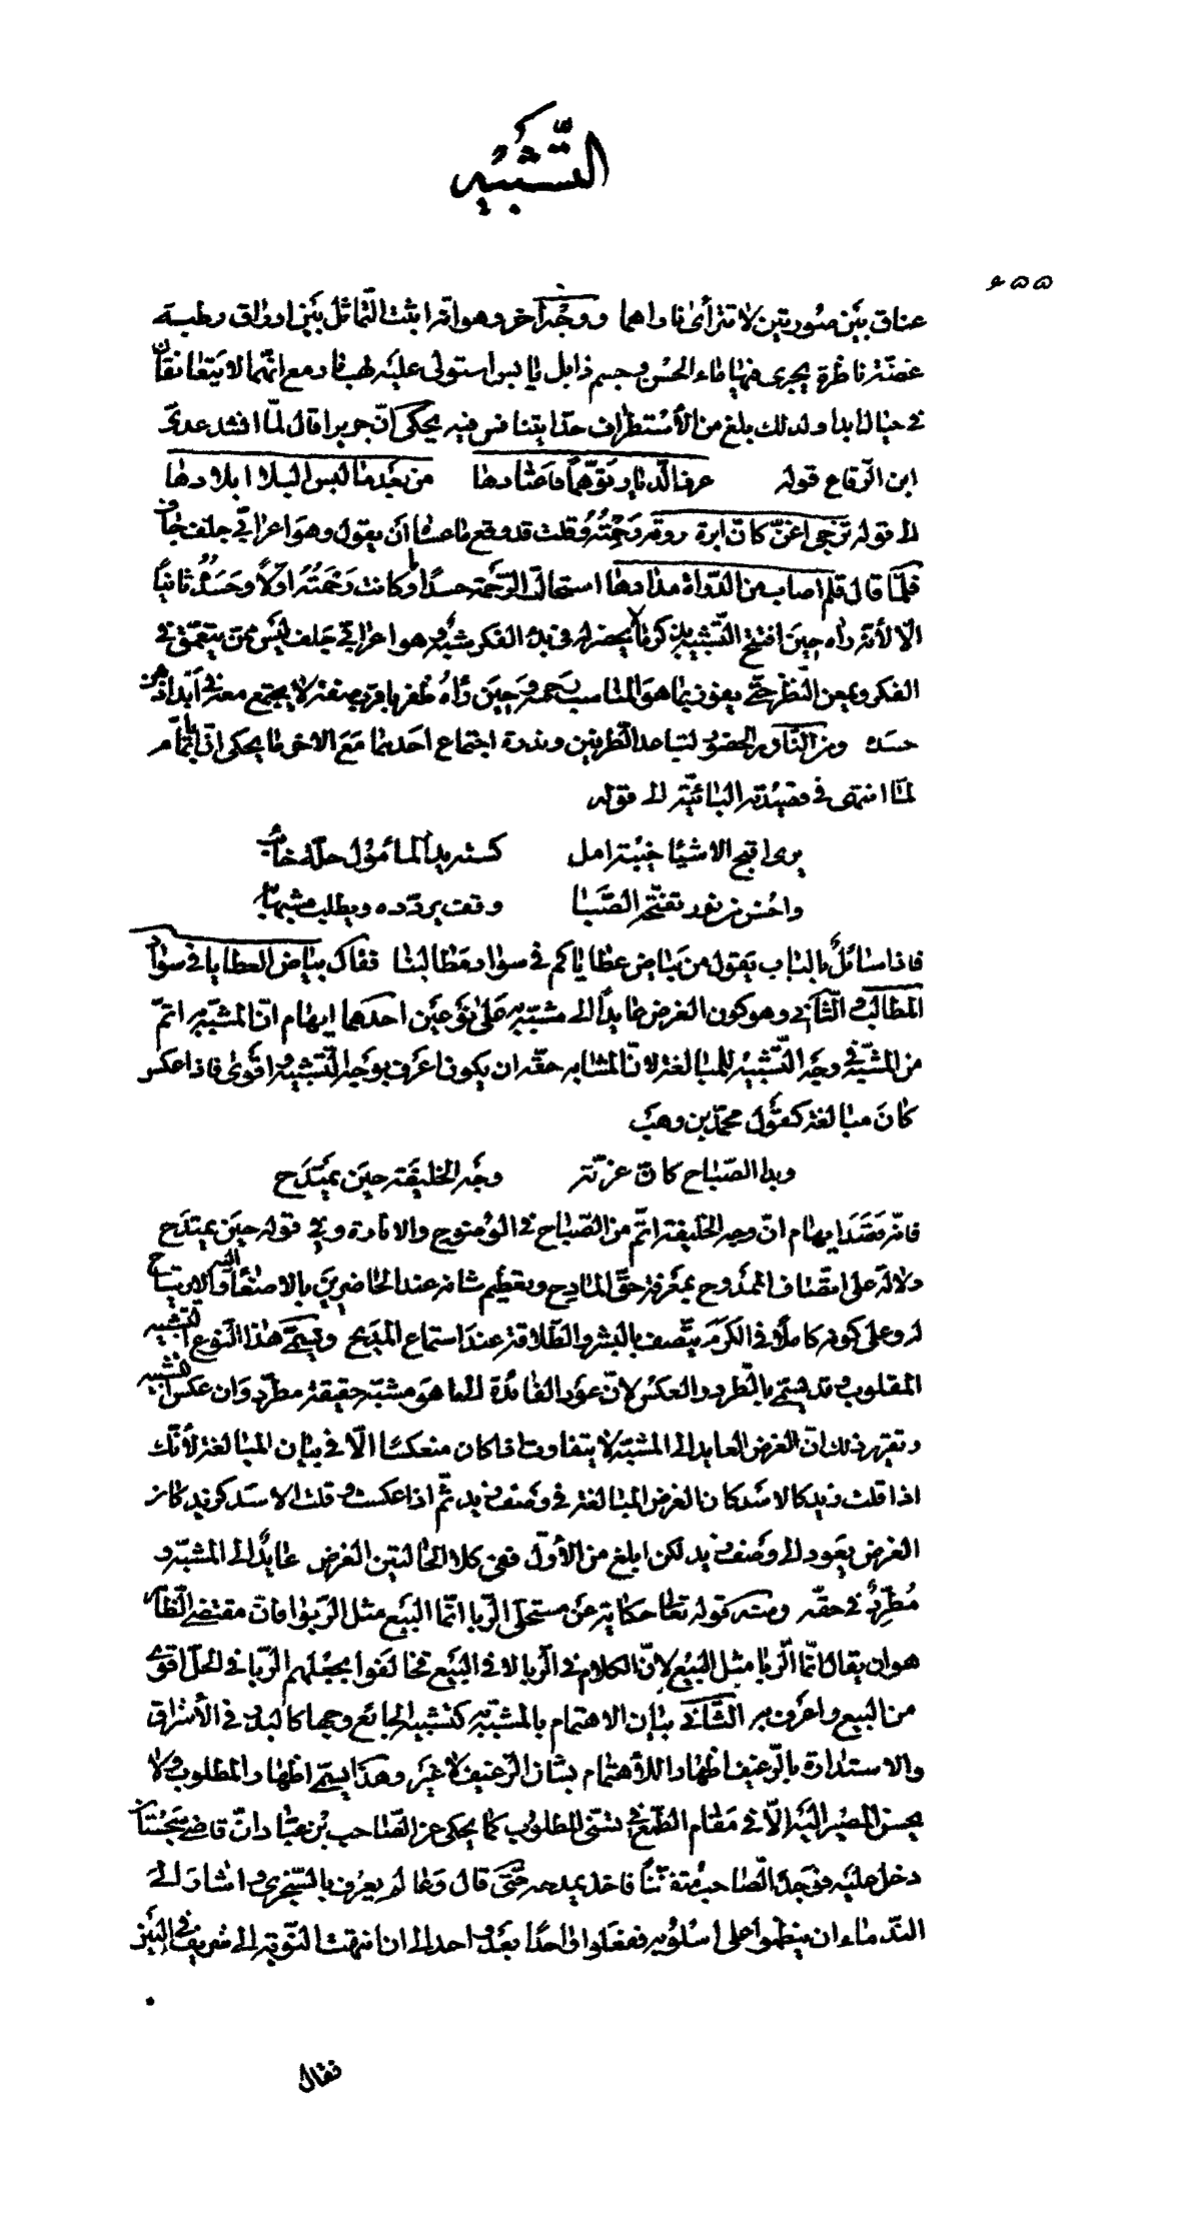 التشبيه
٤٥٥
عناق بين صورتين لا تترأى ناراهما ووجه آخر وهو انه اثبت التماثل بين اوراق رطبة
غضة ناظرة يجرى فيها ماء الحسن وجسم ذابل يابس استولى عليه لهب نار مع انهما لا يتعانقان
في خيال ابدا ولذلك بلغ من الأستطراف حدا يتنافس فيه يحكى انّ جريرا قال لمّا انشد عدىّ
ابن الرقاع قوله عرف الديار توهما فاعتادها من بعد ما لبس البلا ابلادها
الى قوله تزجى اغنّ كانّ ابرة روقه رحمته وقلت قد وقع ما عساه أن يقول وهو اعرابيّ جلف جاف
فلمّا قال قلم اصاب من الدواة مدادها استحالت الرّحمة حسدًا وكانت رحمته اولاً وحسده ثانيًا
الّا لأنه راه حين افتتح التشبيه بذكر ما لا يحضر له فى بدء الفكر شبه وهو اعرابيّ جلف ليس ممن يتعمّق فى
الفكر ويمعن النظر حتى يعثر فيما هو المناسب رحمه وحين راه ظفر باقرب صفة لا يجتمع معه ابدا ذهن
حسده ومن النادر الحضور لتباعد الطرفين وندرة اجتماع احدهما مع الاخر ما يحكى انّ ابا تمّام
لمّا انتهى في قصيدته البائيّة الى قوله
يرى اقبح الاشياء خيبة امل كسته يد المأمول حلّة خائب
واحسن من نور تفتّحه الصَّبا وقف يردّده ويطلب مشبهاً
فاذا سائلٌ بالباب يقول من بياض عطاياكم في سواد مطالبنا فقال بياض العطايا فى سواد
المطالب والثانى وهو كون الغرض عايداً الى مشبه به على نوعين احدهما ايهام انّ المشبّه به اتمّ
من المشبّه فى وجه التّشبيه للمبالغة لانّ المشابه حقه ان يكون اعرف بوجه التّشبيه واقوى فاذا عكس
كان مبالغة كقول محمّد بن وهب
وبدا الصّباح كانّ غرّته وجه الخليفة حين يمتدح
فانّه قصد ايهام انّ وجه الخليفة اتمّ من الصّباح فى الوضوح والانارة وفى قوله حين يمتدح
دلالة على اتّصاف الممدوح بمعرفة حقّ المادح وتعظيم شانه عند الحاضرين بالاصغاء اليه والارتياح
له وعلى كونه كاملًا فى الكرم يتّصف بالبشر والطّلاقة عند استماع المديح ويسمّى هذا النوع التشبيه
المقلوب وقد يسمّى بالطرد والعكس لانّ عود الفائدة الى ما هو مشبّه حقيقة مطرد وان عكس التشبيه
وتقريره ذلك انّ الغرض العايد الى المشبّه لا يتفاوت اذا كان منعكسًا الّا فى بيان المبالغة لأنّك
اذا قلت زيد كالاسد كان الغرض المبالغة فى وصف زيد ثمّ اذا عكست وقلت الاسد كزيد كان
الغرض يعود الى وصف زيد لكن ابلغ من الأول ففى كلا الحالتين الغرض عايدٌ الى المشبّه و
مطردٌ فى حقّه ومنه قوله تعالى حكاية عن مستحلى الرّبا انّما البيع مثل الربوا فانّ مقتضى الظاهر
هو ان يقال انّما الربا مثل البيع لانّ الكلام فى الربا لا فى البيع فخالفوا بجعلهم الرّبا فى الحلّ اقوى
من البيع واعرف به الثانى بيان الاهتمام بالمشبّه به كتشبيه الجائع وجها كالبدر فى الأشراق
والاستدارة بالرّغيف اظهارا للأهتمام بشان الرّغيف لا غير وهذا يسمّى اظهار المطلوب ولا
يحسن المصير اليه الّا فى مقام الطّمع فى تسنّى المطلوب كما يحكى عن الصّاحب بن عبّاد انّ قاضى سجستان
دخل عليه فوجده الصّاحب متفنّنًا فاخذ يمدحه حتّى قال وعالم يعرف بالسّجزى واشار الى
النّدماء ان ينظموا على اسلوبه ففعلوا واحدًا بعد واحد الى ان انتهت النّوبة الى شريف فى البين
فقال